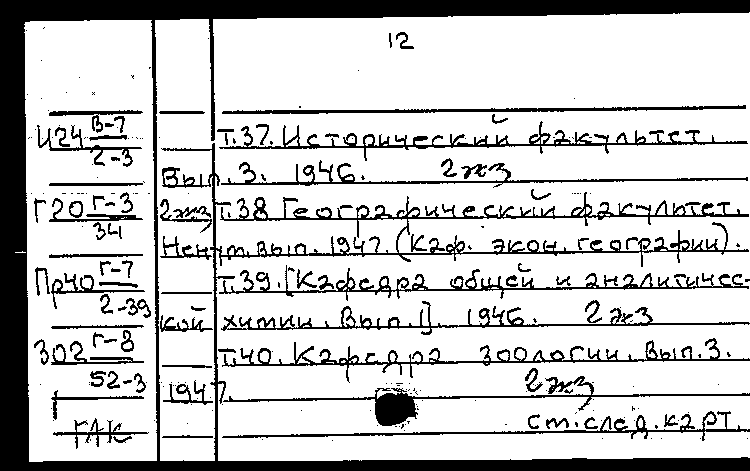 12
И24 В-7/2-3 Т.37. Исторический факультет.
Вып. 3. 1946. 2жз
Г20 Г-3/34 2жз Т.38 Географический факультет.
Ненум. вып. 1947. (Каф. экон. географии).
Пр40 Г-7/2-39 Т.39. [Кафедра общей и аналитичес-
кой химии. Вып. I]. 1946. 2жз
302 Г-8/52-3 Т.40. Кафедра зоологии. Вып. 3.
1947. 2жз
ГАК ст. след. карт.